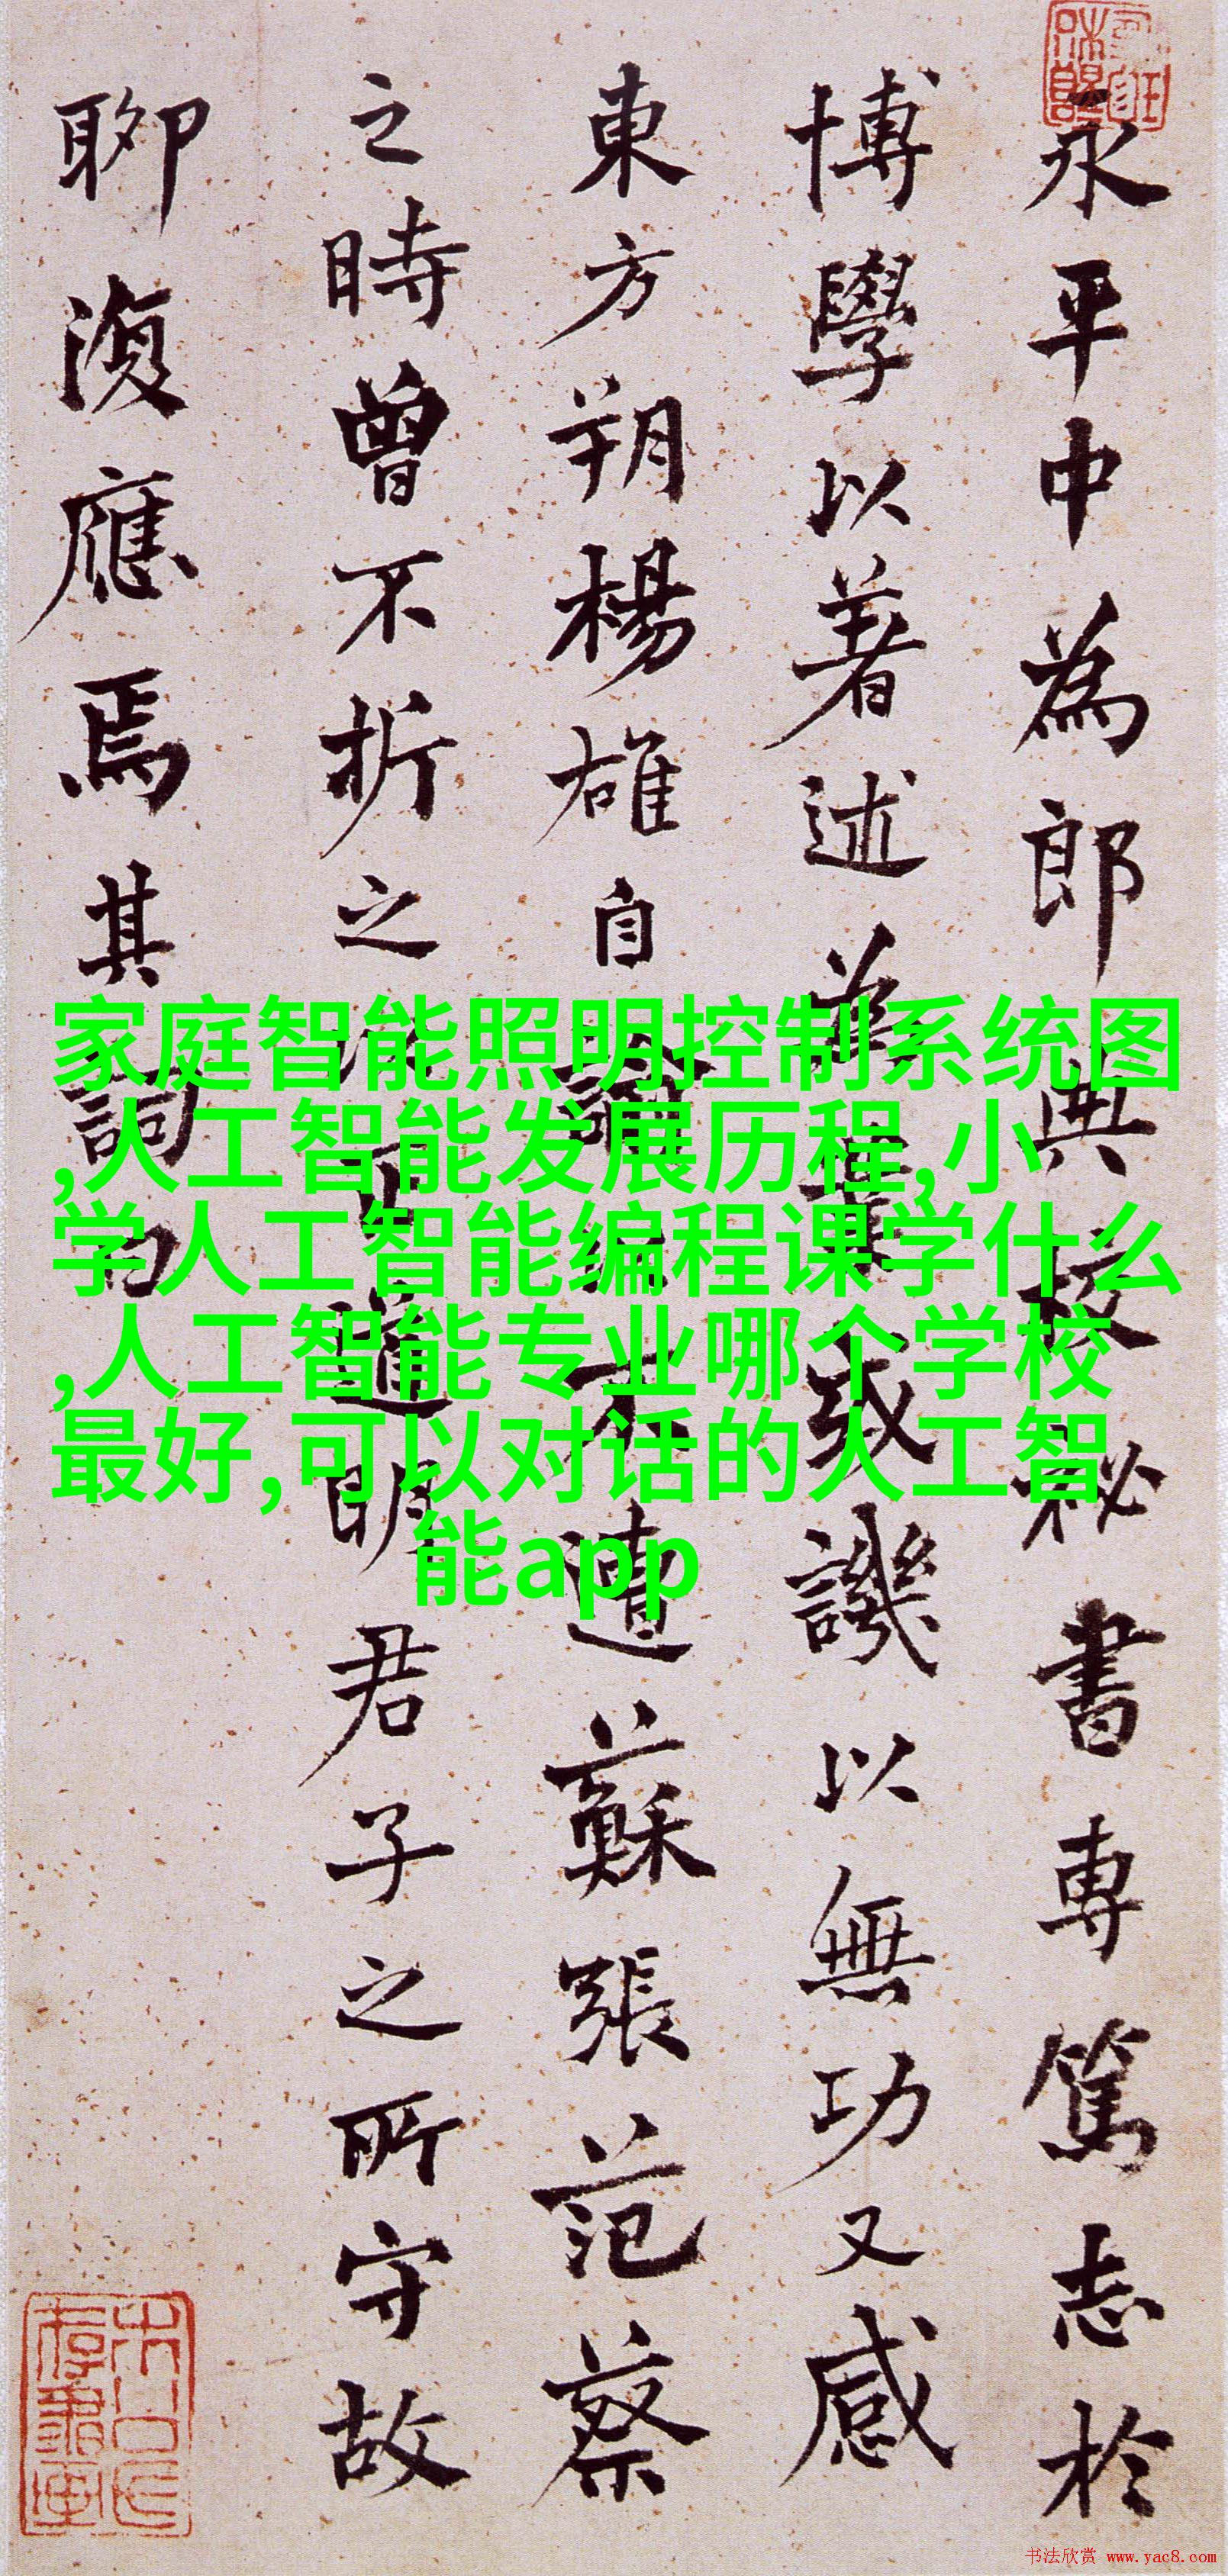 永平中為郎典校秘書專篤志於
博學以著述為業或譏以無功又感
東方朔楊雄自諭以不遭蘇張范蔡
之時曾不折之以正道明君子之所守故
聊復應焉其詞曰
家庭智能照明控制系统图
,人工智能发展历程,小
学人工智能编程课学什么
,人工智能专业哪个学校
最好,可以对话的人工智
能app
书法欣赏 www.yac8.com